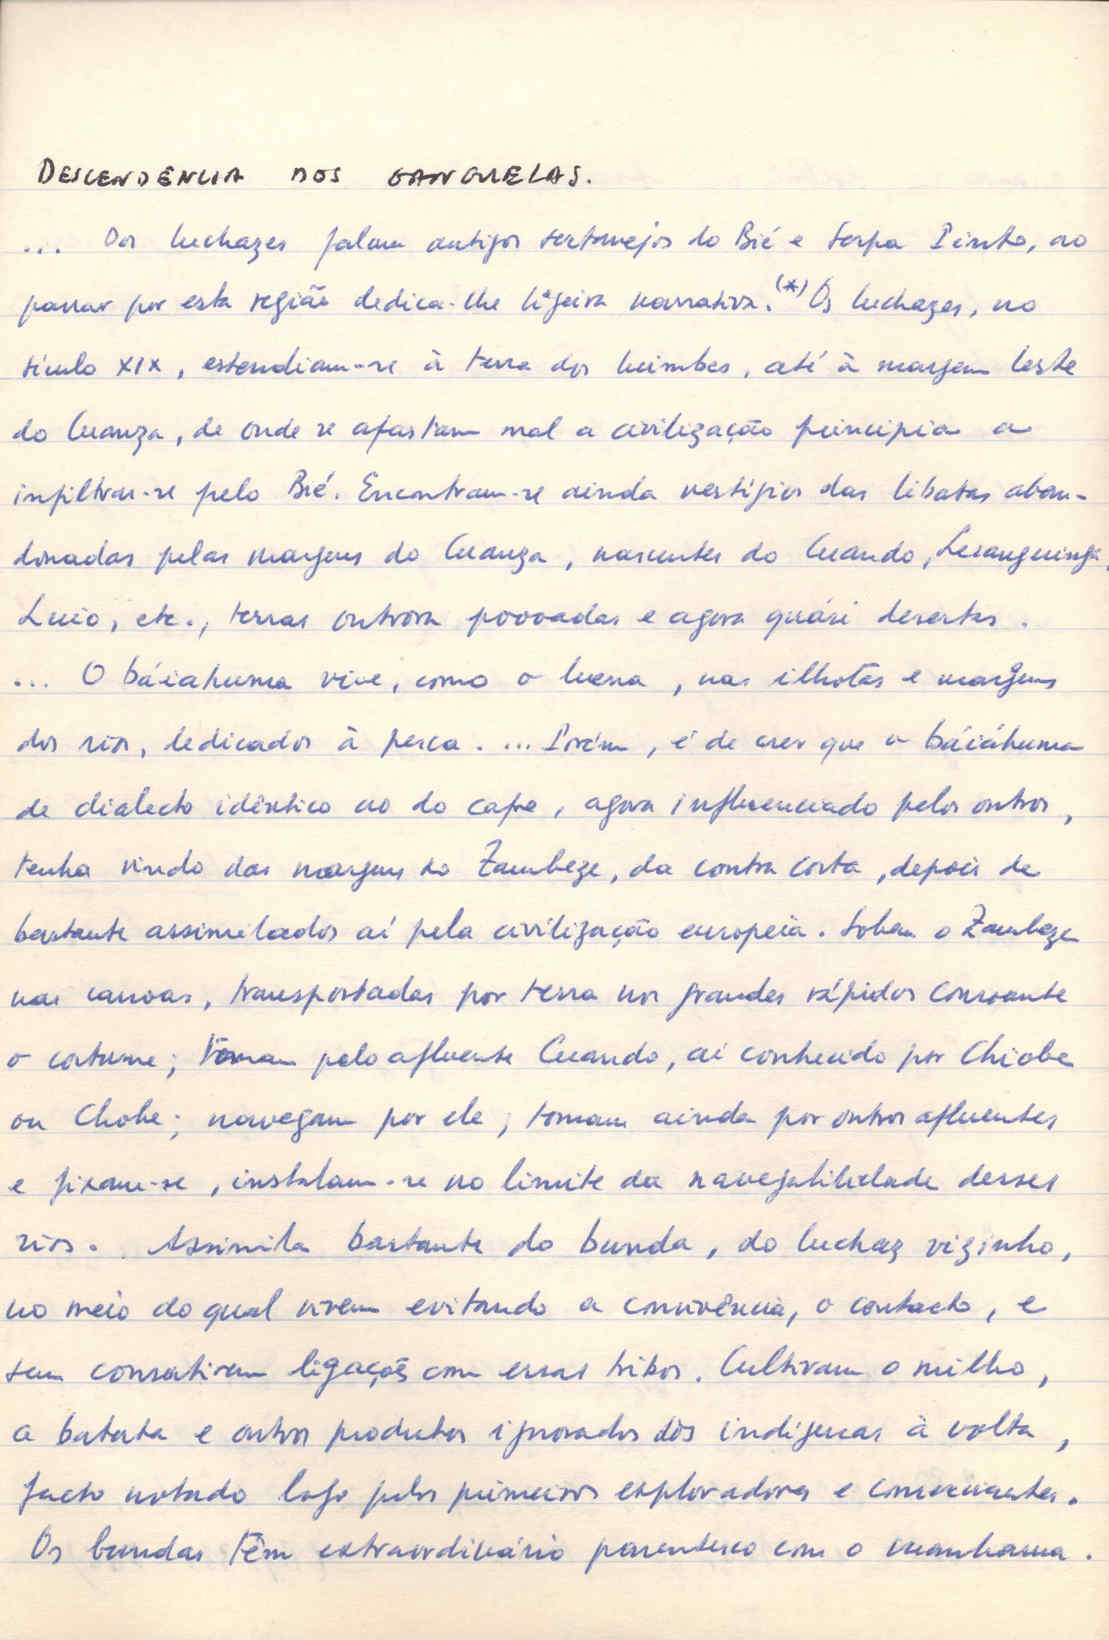 DESCENDÊNCIA DOS GANGUELAS.
... Dos luchazes falam antigos sertanejos do Bié e Serpa Pinto, ao
passar por esta região dedica-lhe ligeira narrativa.(*) Os luchazes, no
século XIX, estendiam-se à terra dos luimbes, até à margem leste
do Cuanza, de onde se afastam mal a civilização principia a
infiltrar-se pelo Bié. Encontram-se ainda vestígios das libatas aban-
donadas pelas margens do Cuanza, nascentes do Cuando,
Luio, etc., terras outrora povoadas e agora quási desertas.
... O báiahuma vive, como o luena, nas ilhotas e margens
dos rios, dedicados à pesca. ... Porém, é de crer que o báiáhuma
de dialecto idêntico ao do cafre, agora influenciado pelos outros,
tenha vindo das margens do Zambeze, da contra costa, depois de
bastante assimilados aí pela civilização europeia. Sobem o Zambeze
nas canoas, transportadas por terra nos grandes rápidos consoante
o costume; tomam pelo afluente Cuando, aí conhecido por Chiobe
ou Chobe; navegam por ele; tomam ainda por outros afluentes
e fixam-se, instalam-se no limite da navegabilidade desses
rios. Assimila bastante do bunda, do luchaz vizinho,
no meio do qual vivem evitando a convivência, o contacto, e
sem consentirem ligações com essas tribos. Cultivam o milho,
a batata e outros produtos ignorados dos indígenas à volta,
facto notado logo pelos primeiros exploradores e comerciantes.
Os bundas têm extraordinário parentesco com o cuanhama.